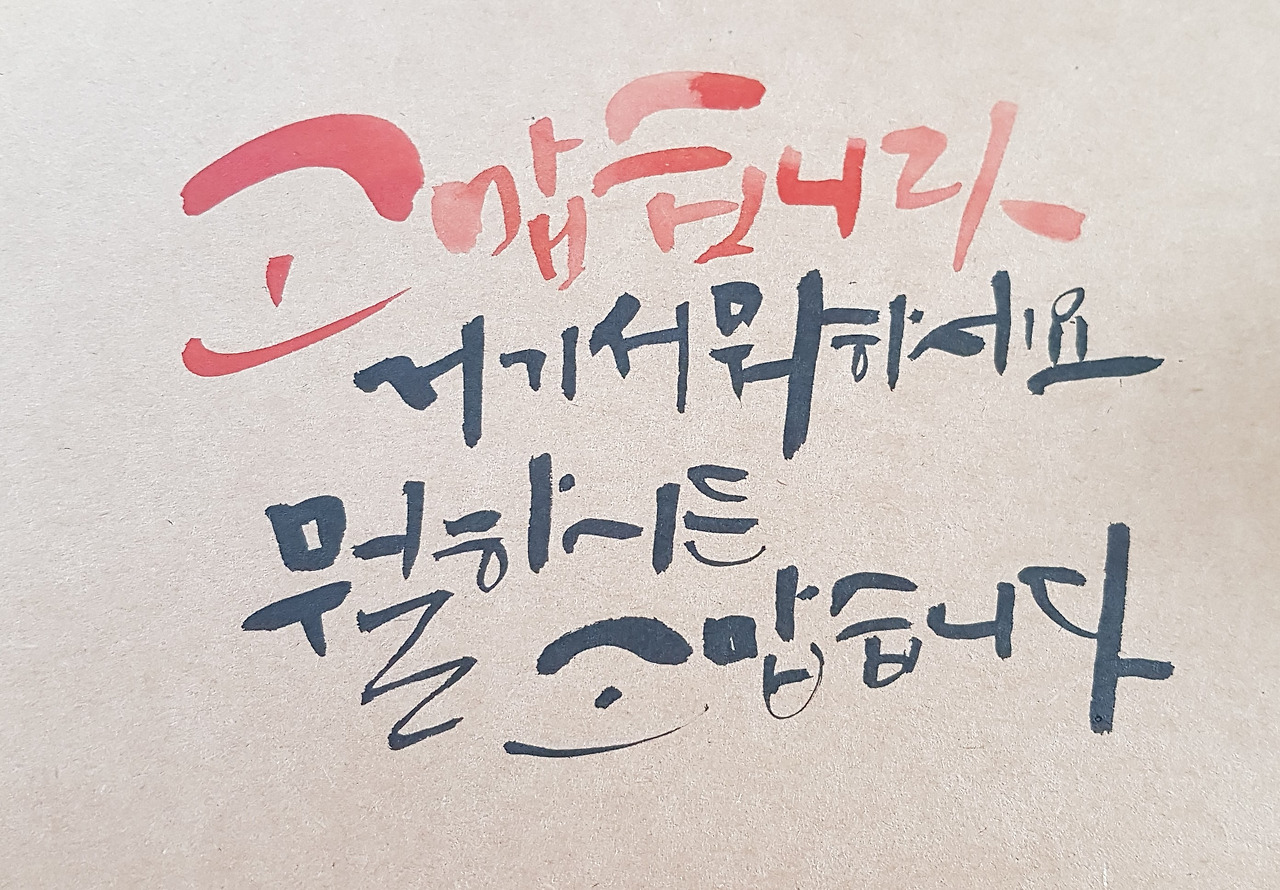 고맙습니다
저기서 뭐하세요
뭘 하시든
고맙습니다